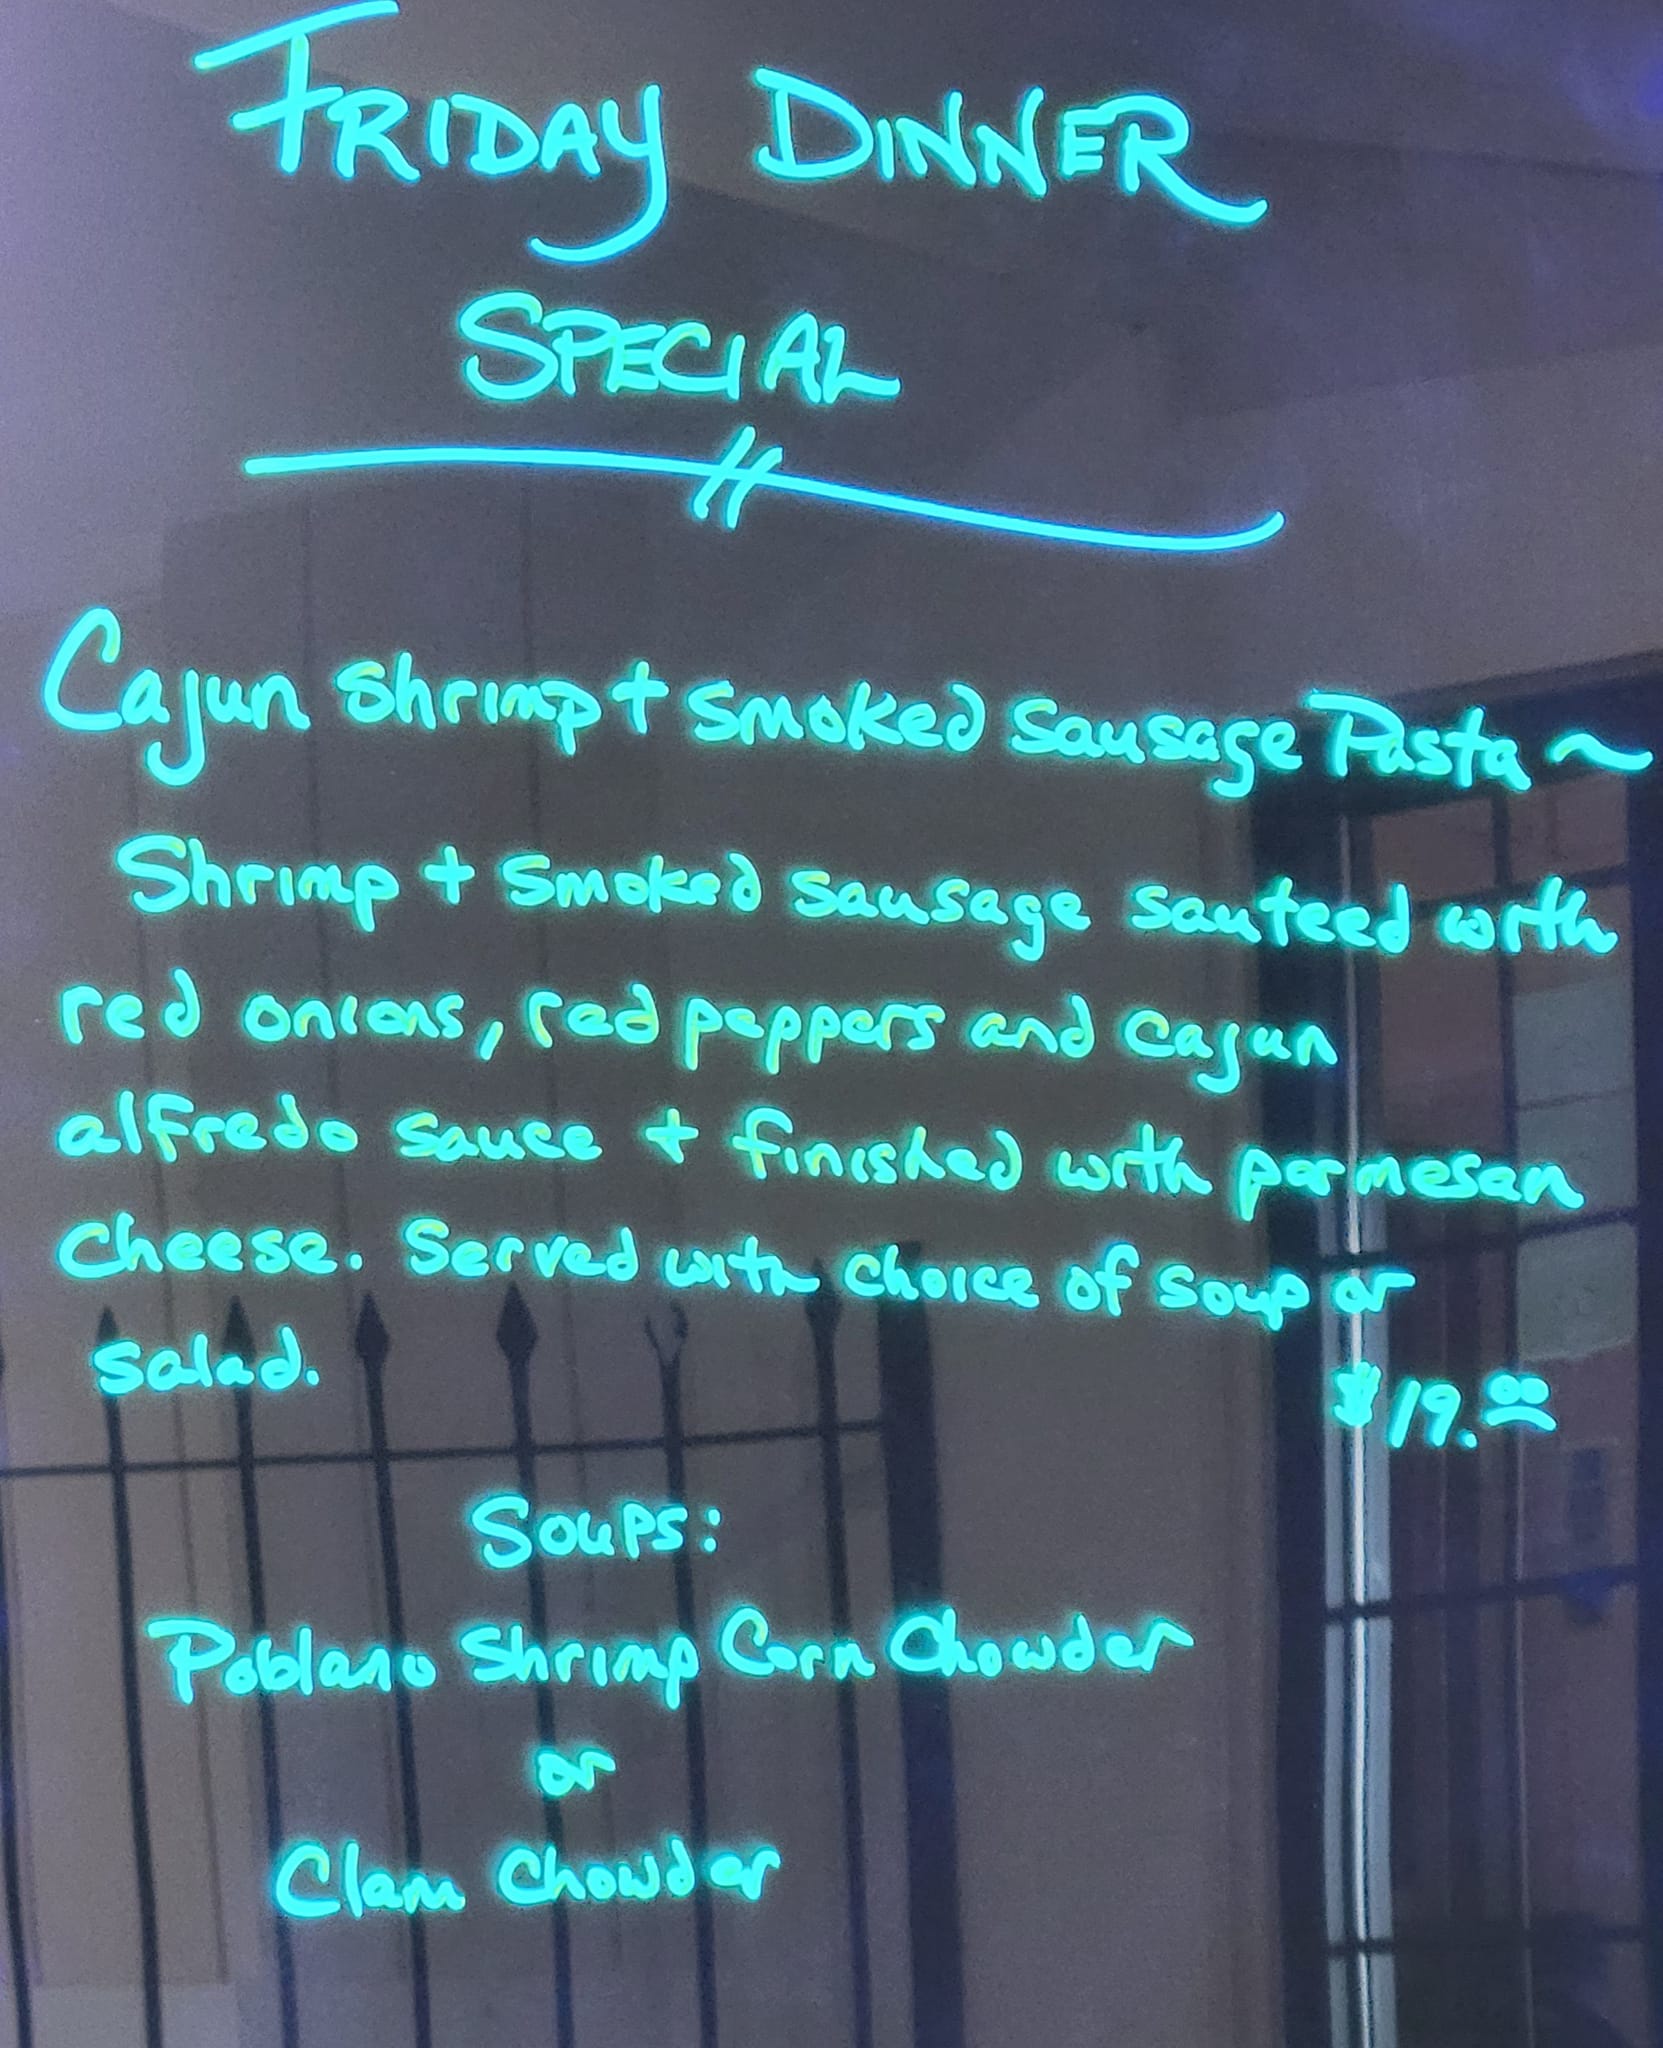 FRIDAY DINNER
SPECIAL
Cajun Shrimp + Smoked Sausage Pasta ~
Shrimp + Smoked Sausage sauteed with
red onions, red peppers and cajun
alfredo sauce + finished with parmesan
Cheese. Served with choice of soup or
salad.
$19.00
Soups:
Poblano Shrimp Corn Chowder
or
Clam Chowder